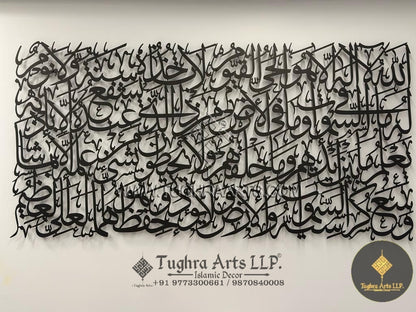 الله لا إله إلا هو الحي القيوم لا تأخذه سنة ولا نوم
له ما في السموات وما في الأرض من ذا الذي يشفع عنده إلا بإذنه
يعلم ما بين أيديهم وما خلفهم ولا يحيطون بشيء من علمه إلا بما شاء
وسع كرسيه السموات والأرض ولا يؤوده حفظهما وهو العلي العظيم
Tughra Arts LLP.
Islamic Decor
+91 9773300661 / 9870840008
Tughra Arts LLP.